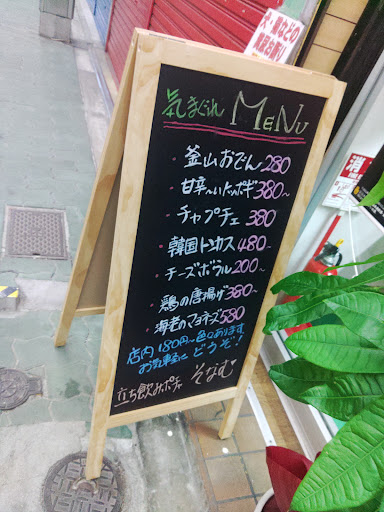 犬・猫などの
糞尿お断り
気まぐれ MENU
・釜山おでん 280
・甘辛〜いトッポギ 380〜
・チャプチェ 380
・韓国トンカス 480〜
・チーズボラル 200〜
・鶏の唐揚げ 380〜
・海老のマヨネーズ 580
店内180円〜色々あります
お気軽に どうぞ!
立ち飲みポチャ そなむ
消